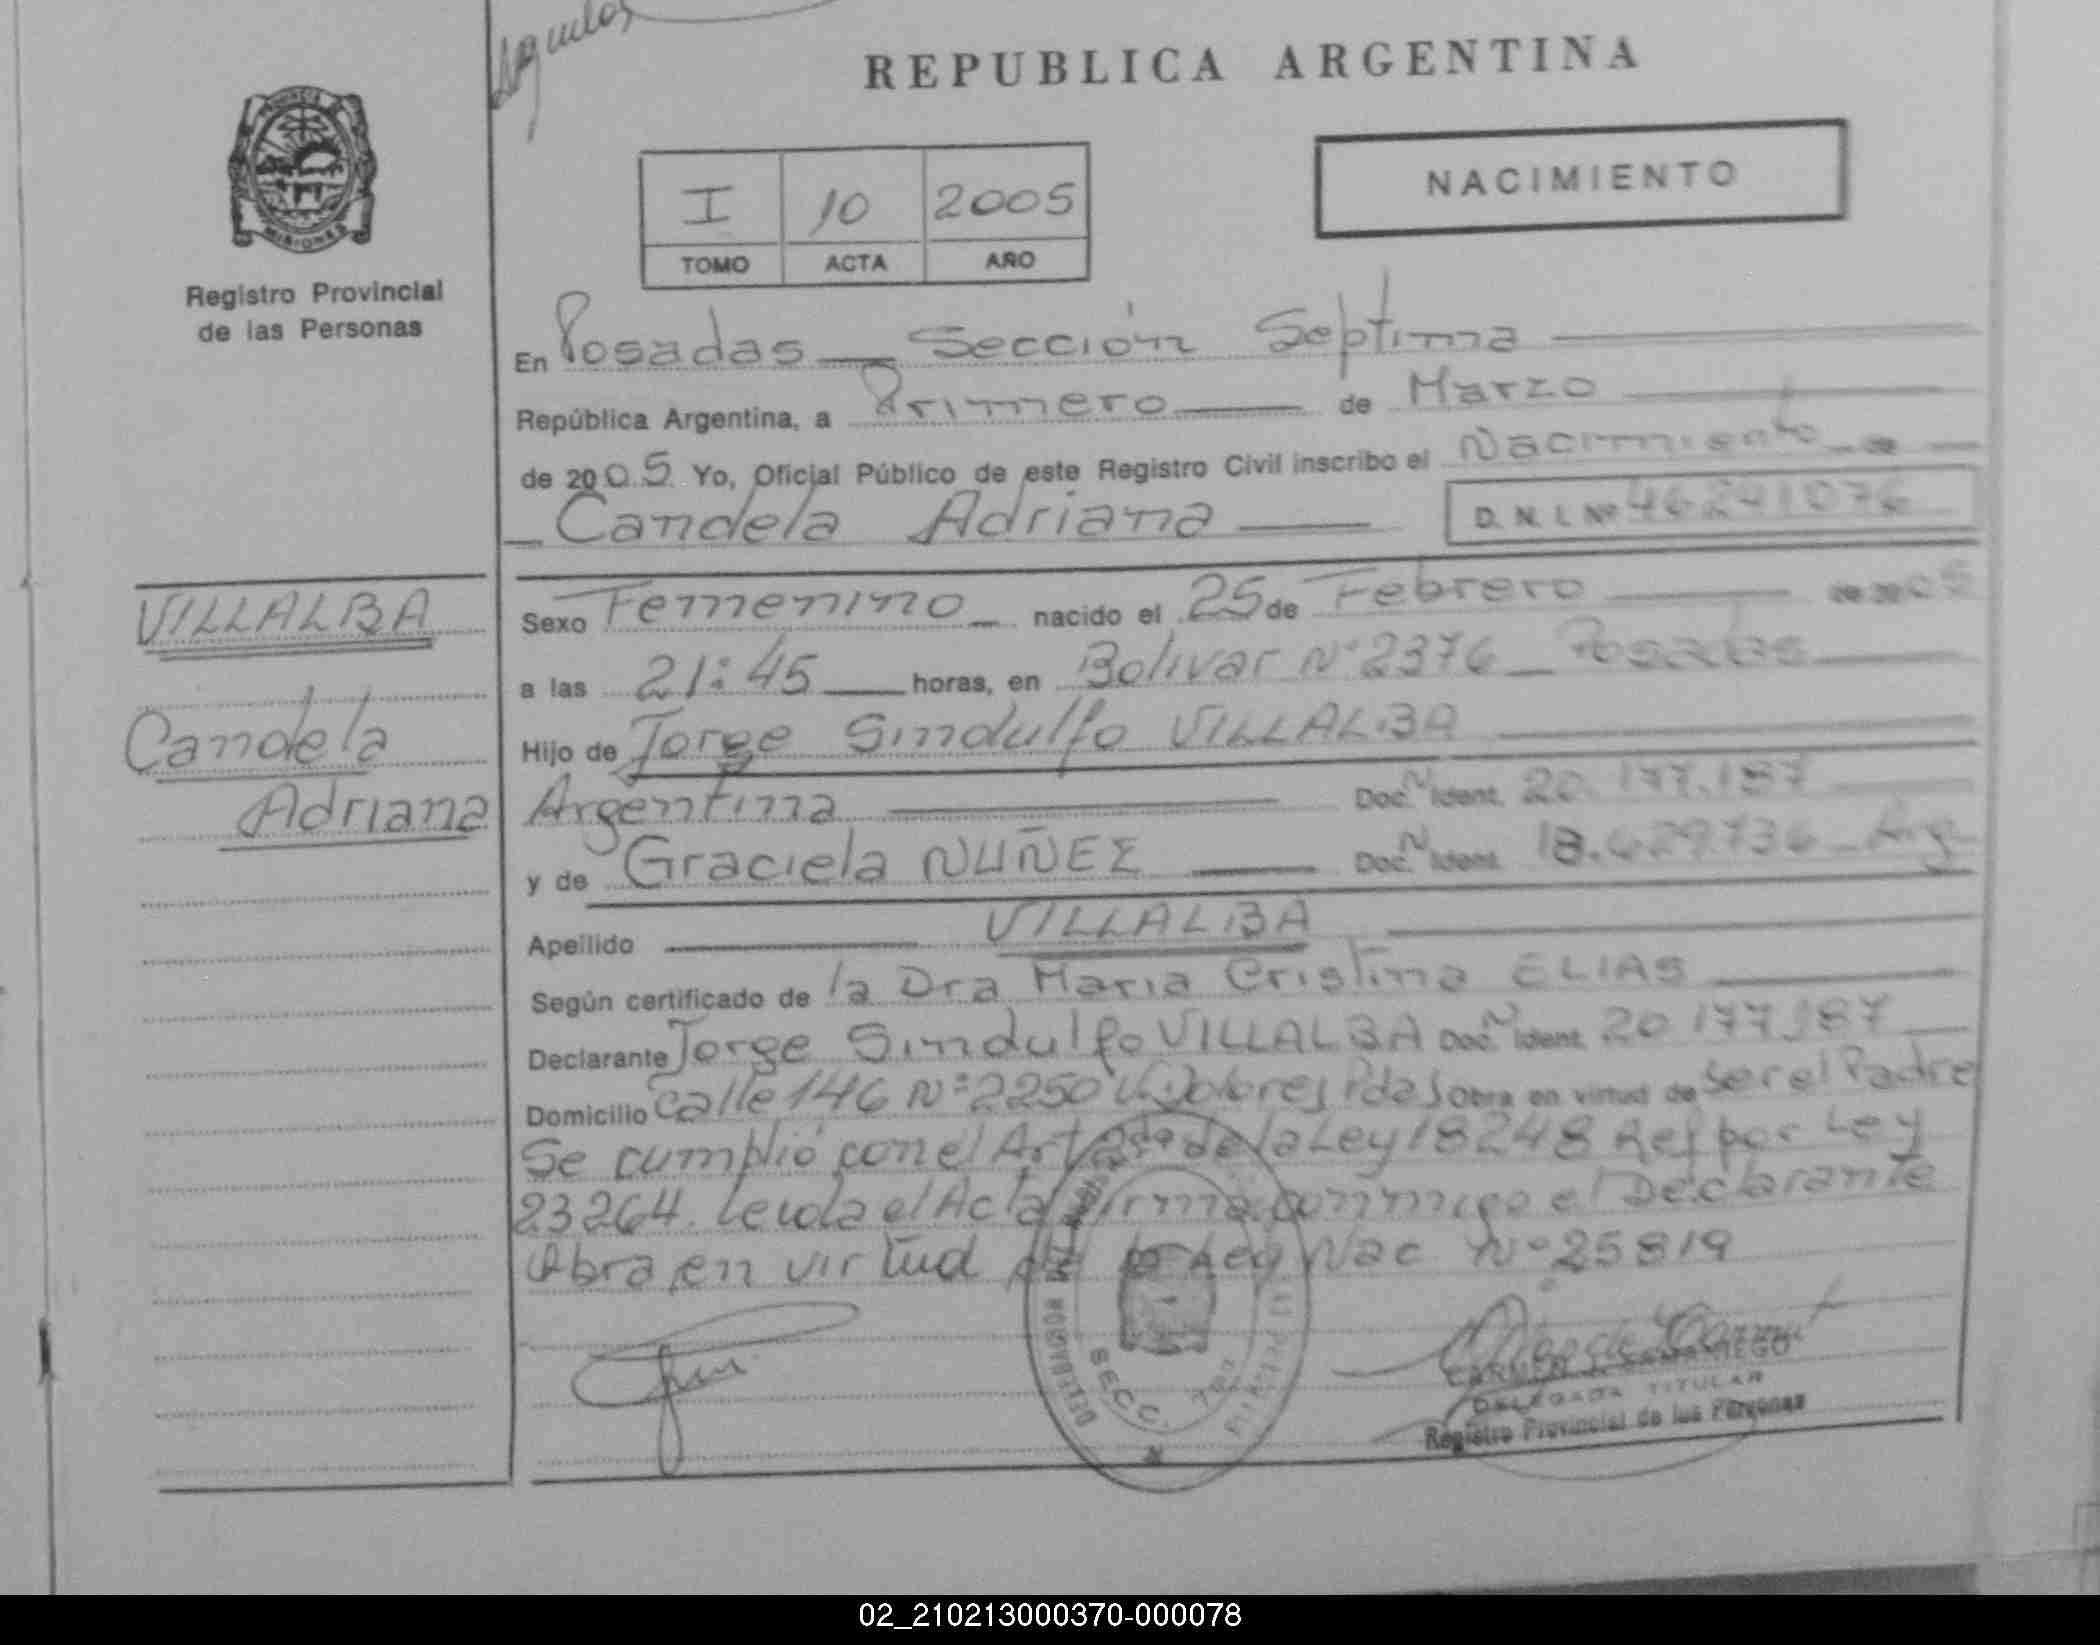 REPUBLICA ARGENTINA
NACIMIENTO
I 10 2005
TOMO ACTA AÑO
PROVINCIA DE
MISIONES
Registro Provincial
de las Personas
En Posadas — Sección Septima
República Argentina, a Primero de Marzo
de 2005 Yo, Oficial Público de este Registro Civil inscribo el Nacimiento de
Candela Adriana D.N.I. Nº 46241076
VILLALBA
Candela
Adriana
Sexo Femenino nacido el 25 de Febrero de 2005
a las 21:45 horas, en Bolivar Nº 2376 _ Posadas
Hijo de Jorge Sindulfo VILLALBA
Argentina Doc. N Ident. 20.177.187
y de Graciela NUÑEZ Doc. N Ident. 18.629.736 _ Arg
Apellido VILLALBA
Según certificado de la Dra Maria Cristina ELIAS
Declarante Jorge Sindulfo VILLALBA Doc. N Ident. 20 177.187
Domicilio Calle 146 Nº 2250 V. Dolores Pdas Obra en virtud de ser el Padre
Se cumplió con el Art 2do de la Ley 18248 Ref por Ley
23264. Leida el Acta firma conmigo el Declarante
Obra en virtud de la Ley Nac Nº 25819
SECC. 7ma
CARMEN J. SAMANIEGO
DELEGADA TITULAR
Registro Provincial de las Personas
02_210213000370-000078